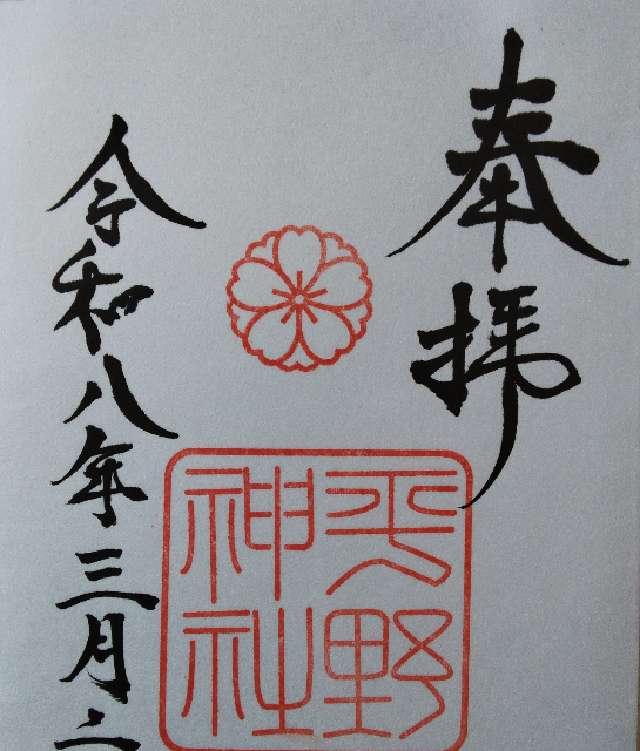 奉拝
平野
神社
令和八年三月二